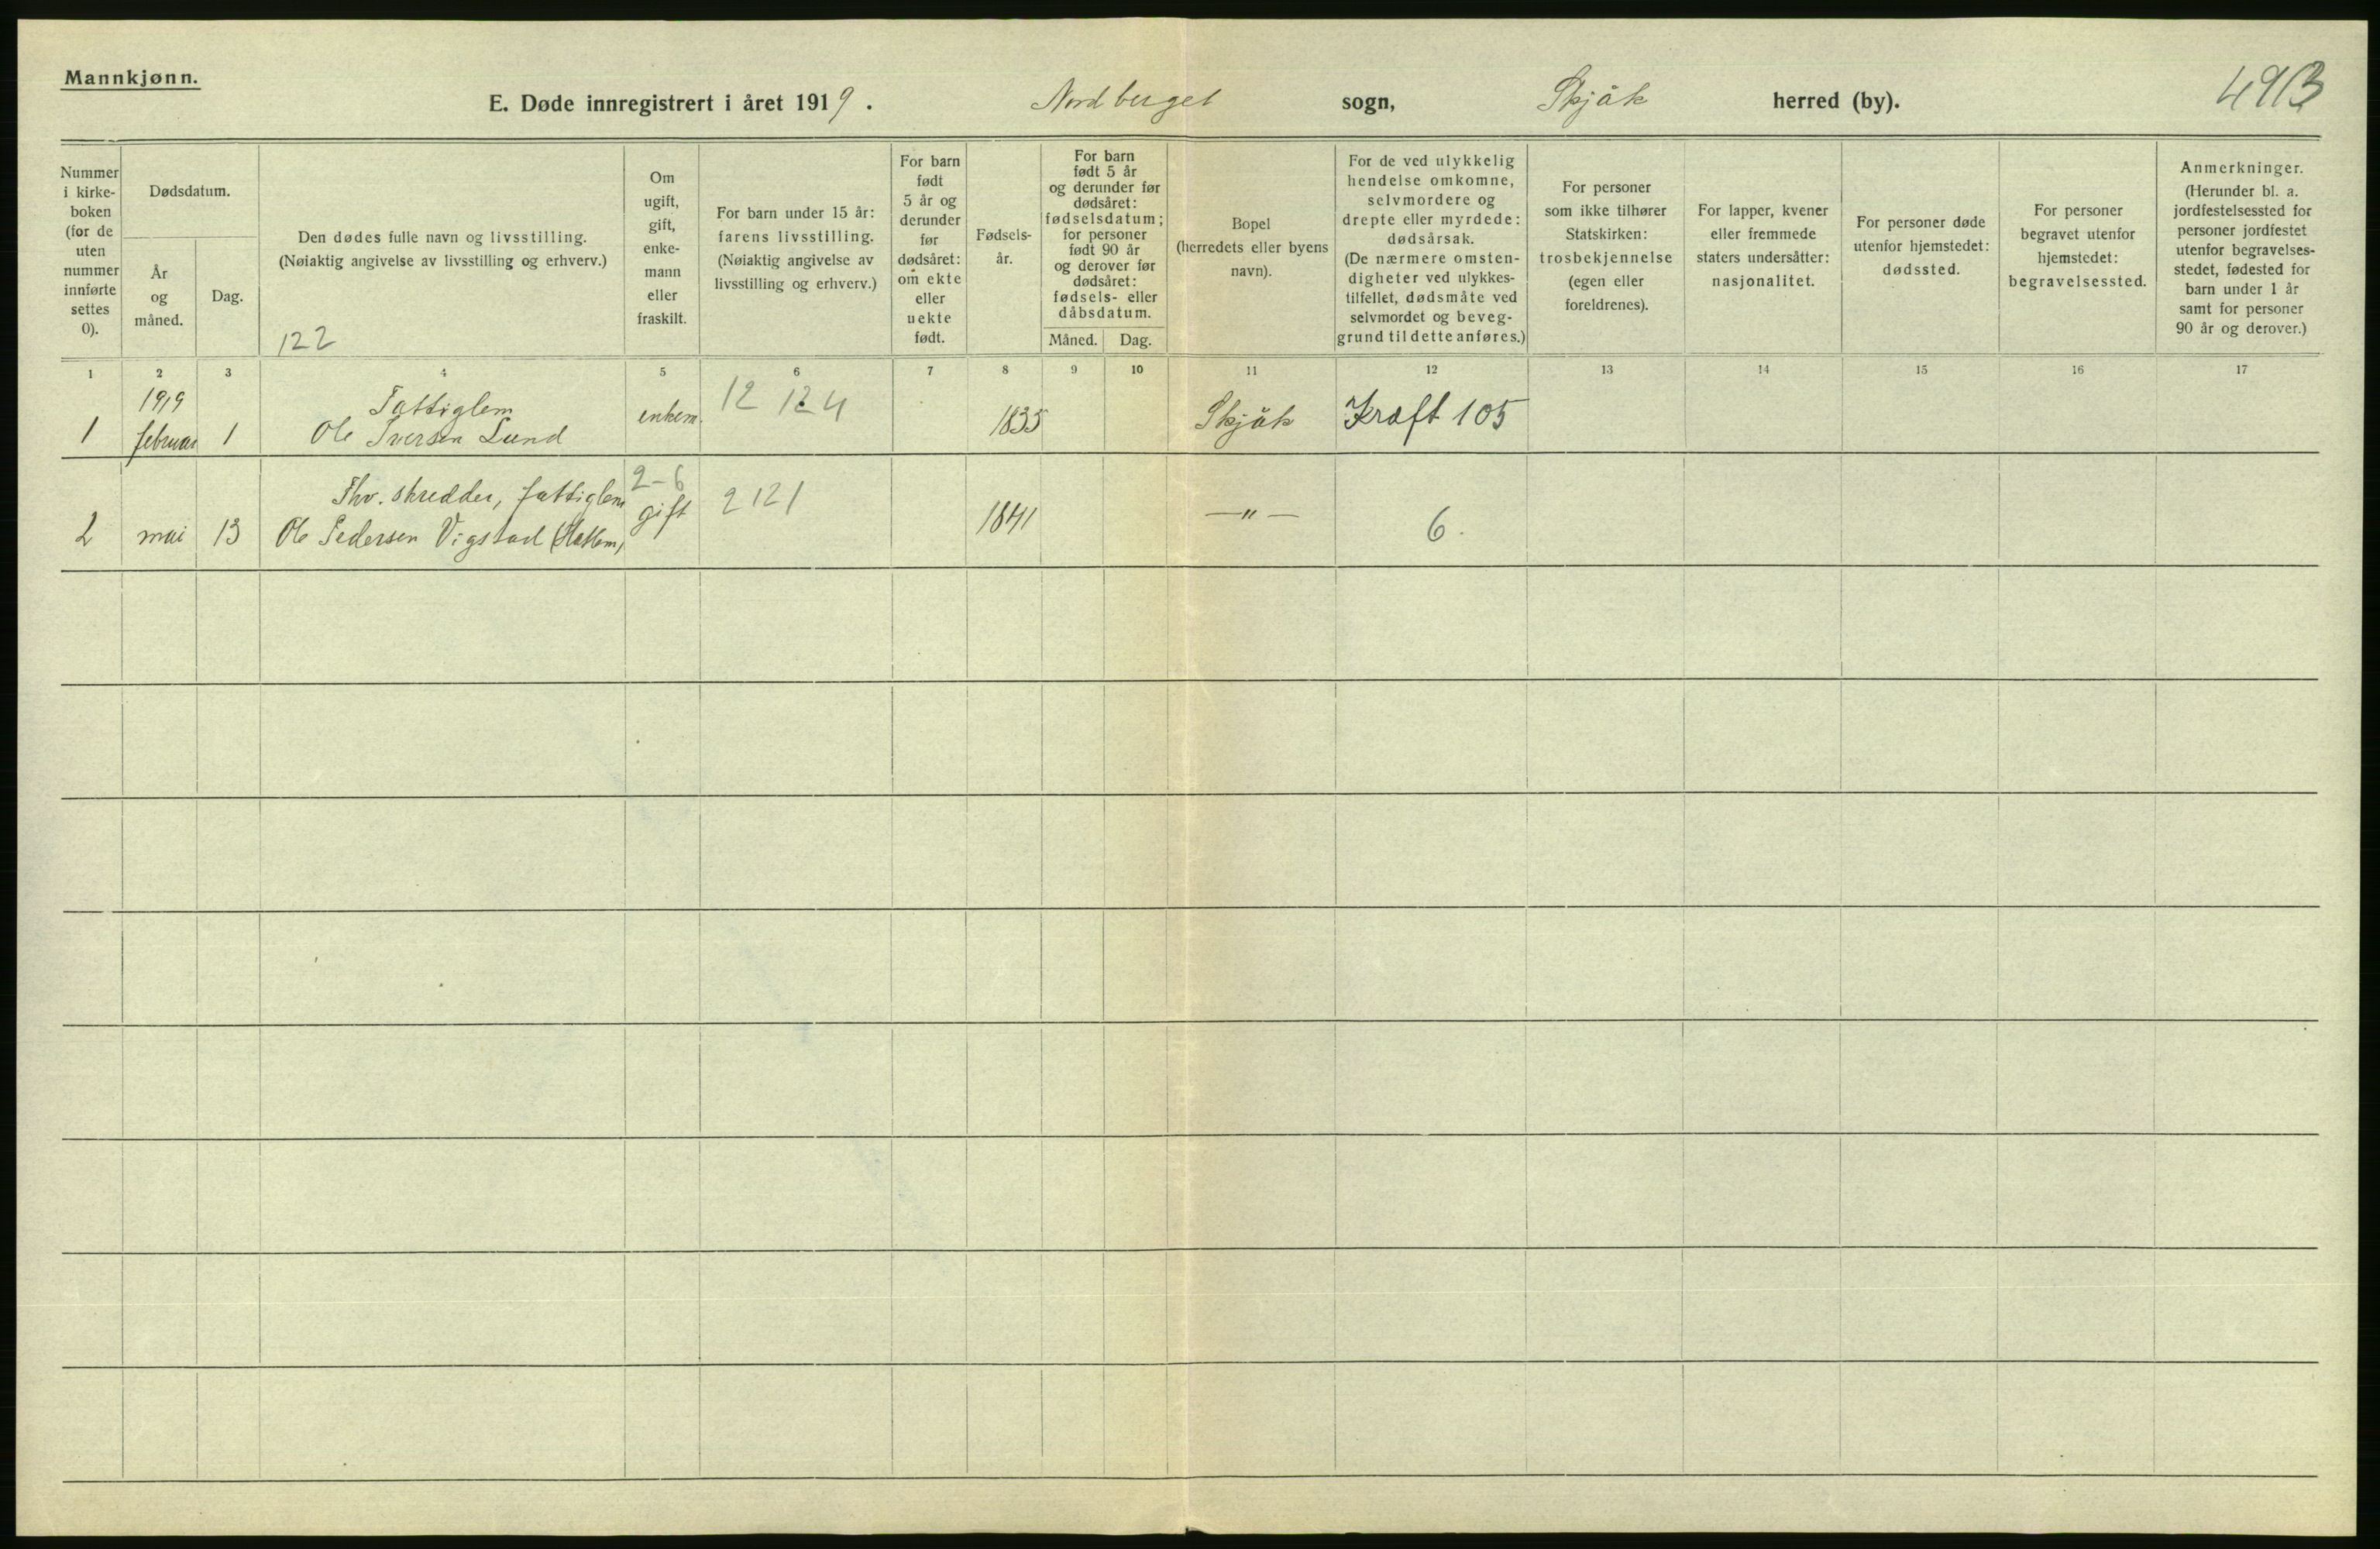 Mannkjønn.
E. Døde innregistrert i året 1919. Nordberget sogn, Skjåk herred (by).
493
Nummer i kirke-
boken
(for de
uten
nummer
innførte
settes
0).
Dødsdatum.
År
og
måned.
Dag.
Den dødes fulle navn og livsstilling.
(Nøiaktig angivelse av livsstilling og erhverv.)
122
Om
ugift,
gift,
enke-
mann
eller
fraskilt.
For barn under 15 år:
farens livsstilling.
(Nøiaktig angivelse av
livsstilling og erhverv.)
For barn
født
5 år og
derunder
før
dødsåret:
om ekte
eller
uekte
født.
Fødsels-
år.
For barn
født 5 år
og derunder før
dødsåret:
fødselsdatum;
for personer
født 90 år
og derover før
dødsåret:
fødsels- eller
dåbsdatum.
Måned. Dag.
Bopel
(herredets eller byens
navn).
For de ved ulykkelig
hendelse omkomne,
selvmordere og
drepte eller myrdede:
dødsårsak.
(De nærmere omsten-
digheter ved ulykkes-
tilfellet, dødsmåte ved
selvmordet og beveg-
grund til dette anføres.)
For personer
som ikke tilhører
Statskirken:
trosbekjennelse
(egen eller
foreldrenes).
For lapper, kvener
eller fremmede
staters undersåtter:
nasjonalitet.
For personer døde
utenfor hjemstedet:
dødssted.
For personer
begravet utenfor
hjemstedet:
begravelsessted.
Anmerkninger.
(Herunder bl. a.
jordfestelsessted for
personer jordfestet
utenfor begravelses-
stedet, fødested for
barn under 1 år
samt for personer
90 år og derover.)
1 2 3 4 5 6 7 8 9 10 11 12 13 14 15 16 17
1919 Fattiglem enkem. 12 124
1 februar 1 Ole Iversen Lund 1835 Skjåk Kræft 105
Fhv. skredder, fattiglem 2-6 gift 2 121
2 mai 13 Ole Pedersen Vigstad 1841 —"— 6.